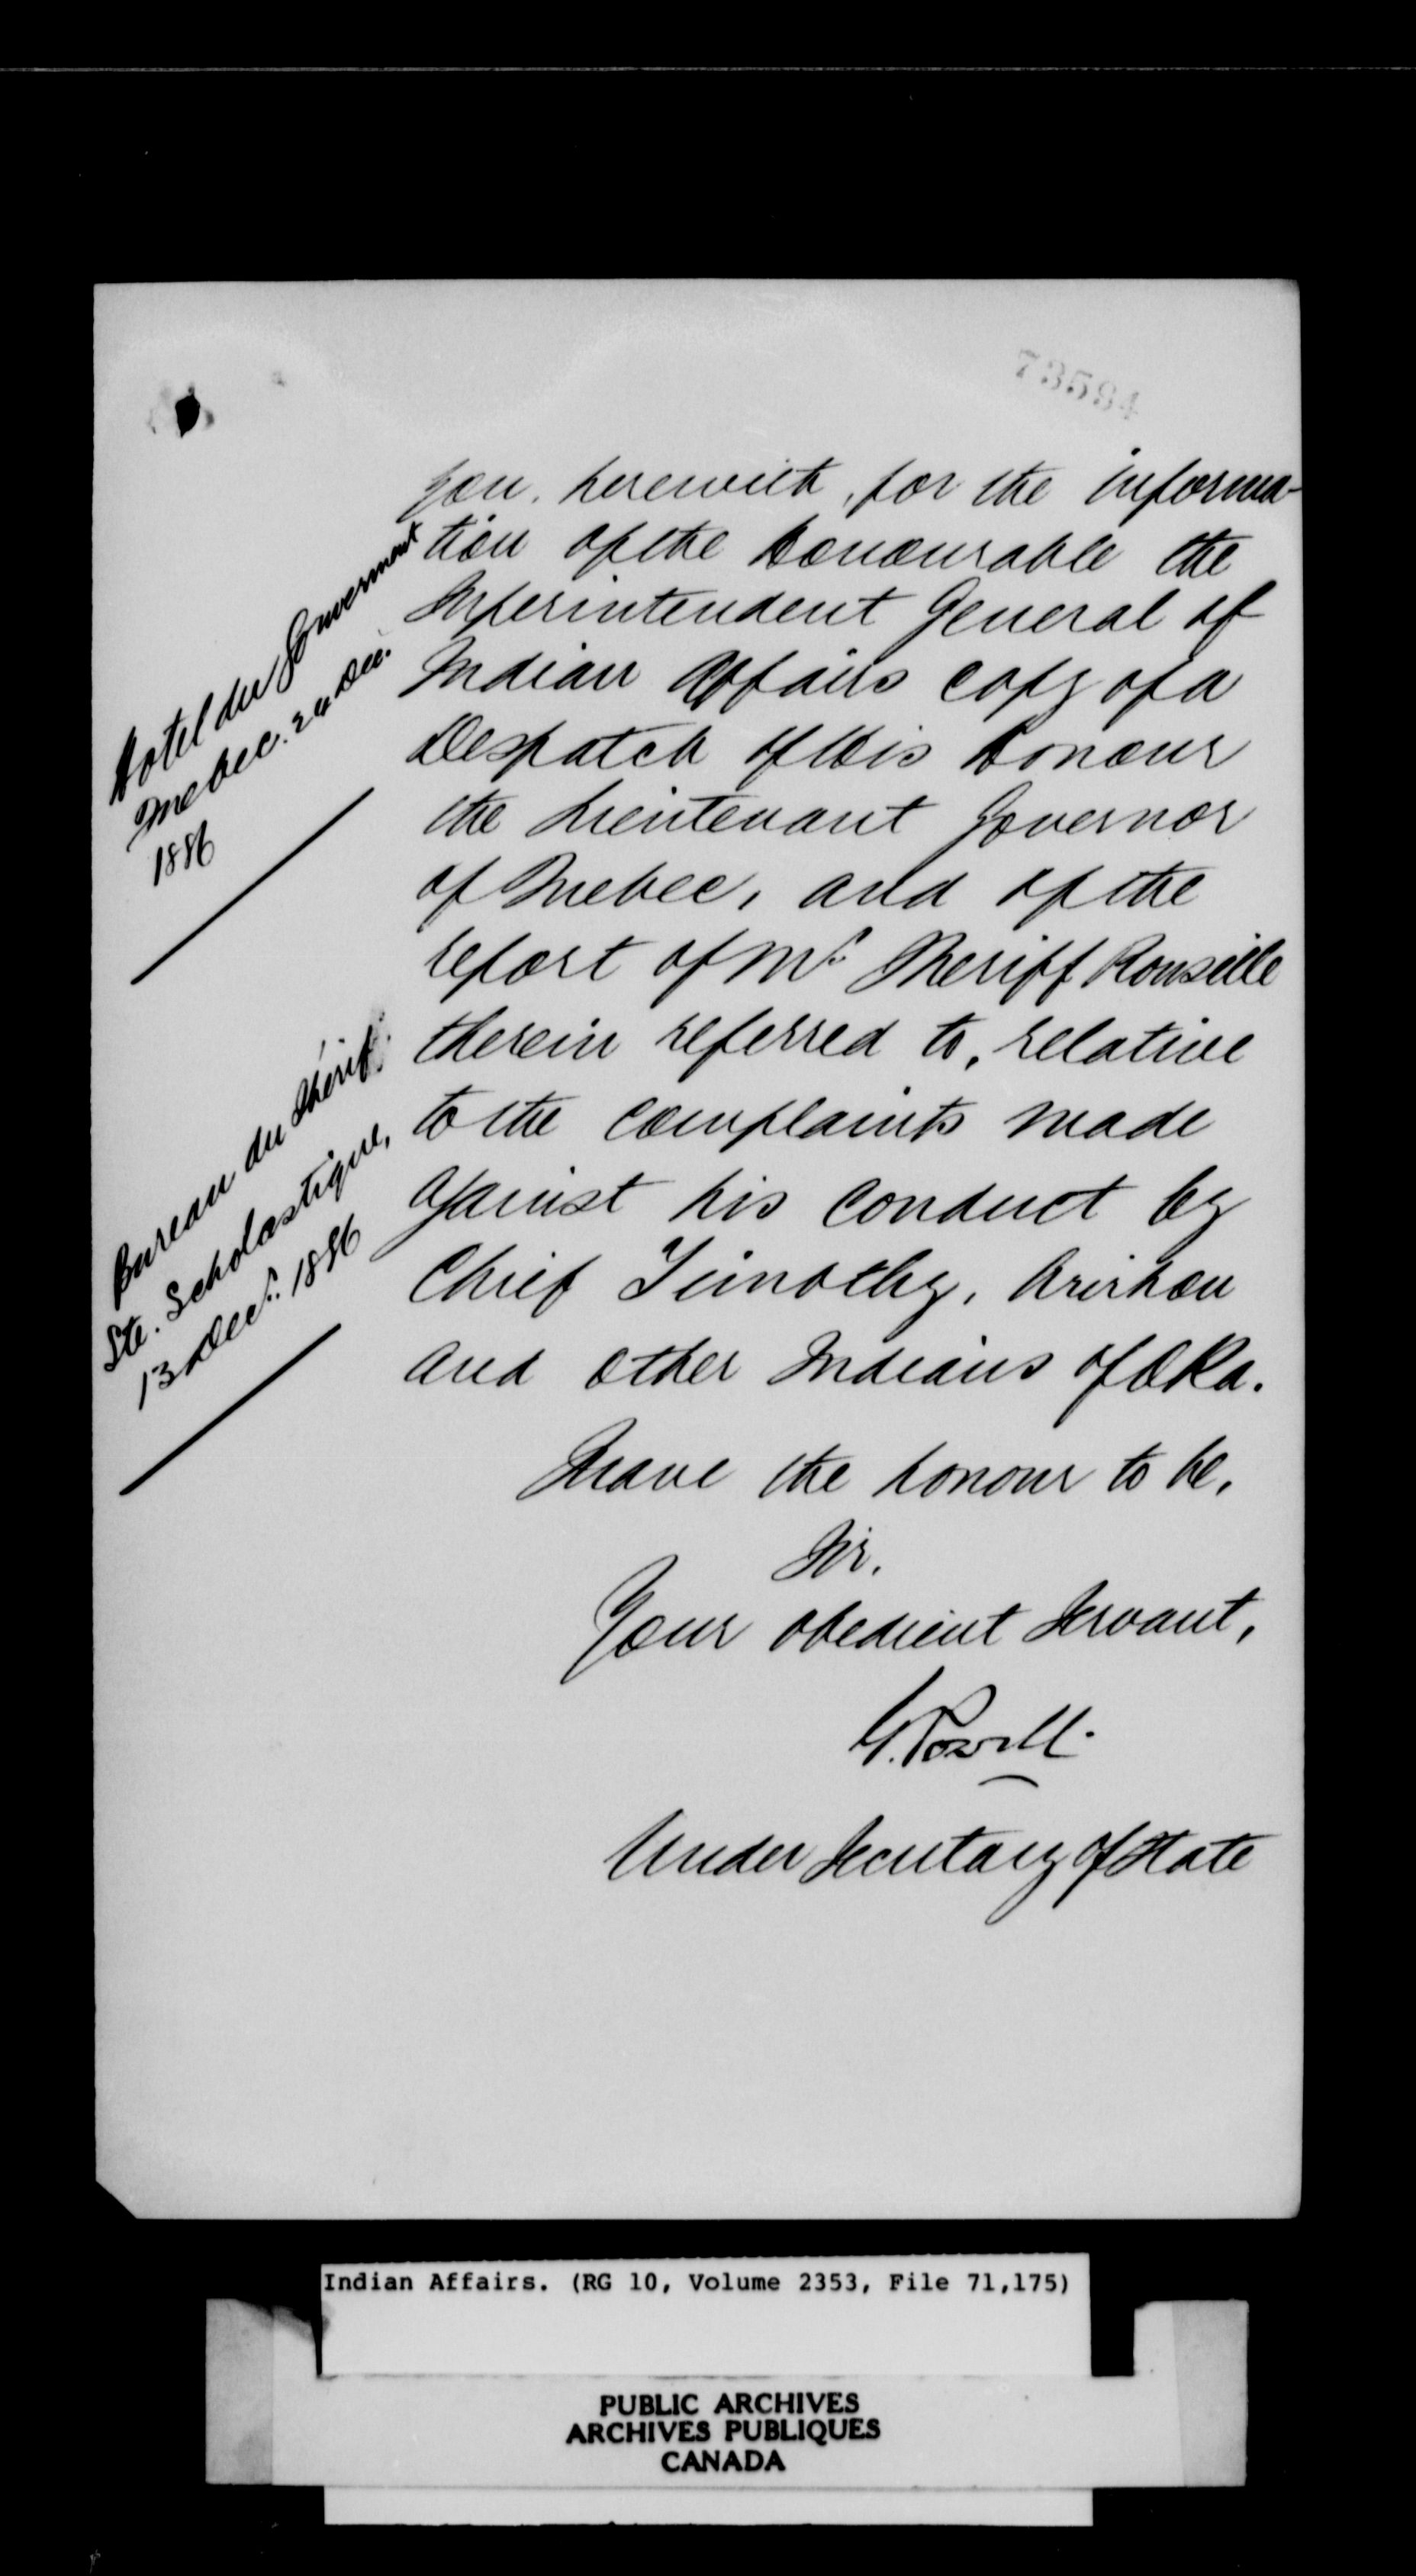 73594
you, herewith, for the informa-
tion of the Honourable the
Superintendent General of
Indian Affairs copy of a
Despatch of His Honour
the Lieutenant Governor
of Quebec, and of the
report of Mr. Sheriff Rouseille
therein referred to, relative
to the complaints made
against his conduct by
Chief Timothy, Arirhon
and other Indians of Oka.
I have the honour to be,
Sir,
Your obedient servant,
G. Powell.
Under Secretary of State
Hotel du Gouvernment
Quebec. 24 Dec.
1886
Bureau du Shérif.
Ste. Scholastique,
13 Decr. 1886
Indian Affairs. (RG 10, Volume 2353, File 71,175)
PUBLIC ARCHIVES
ARCHIVES PUBLIQUES
CANADA